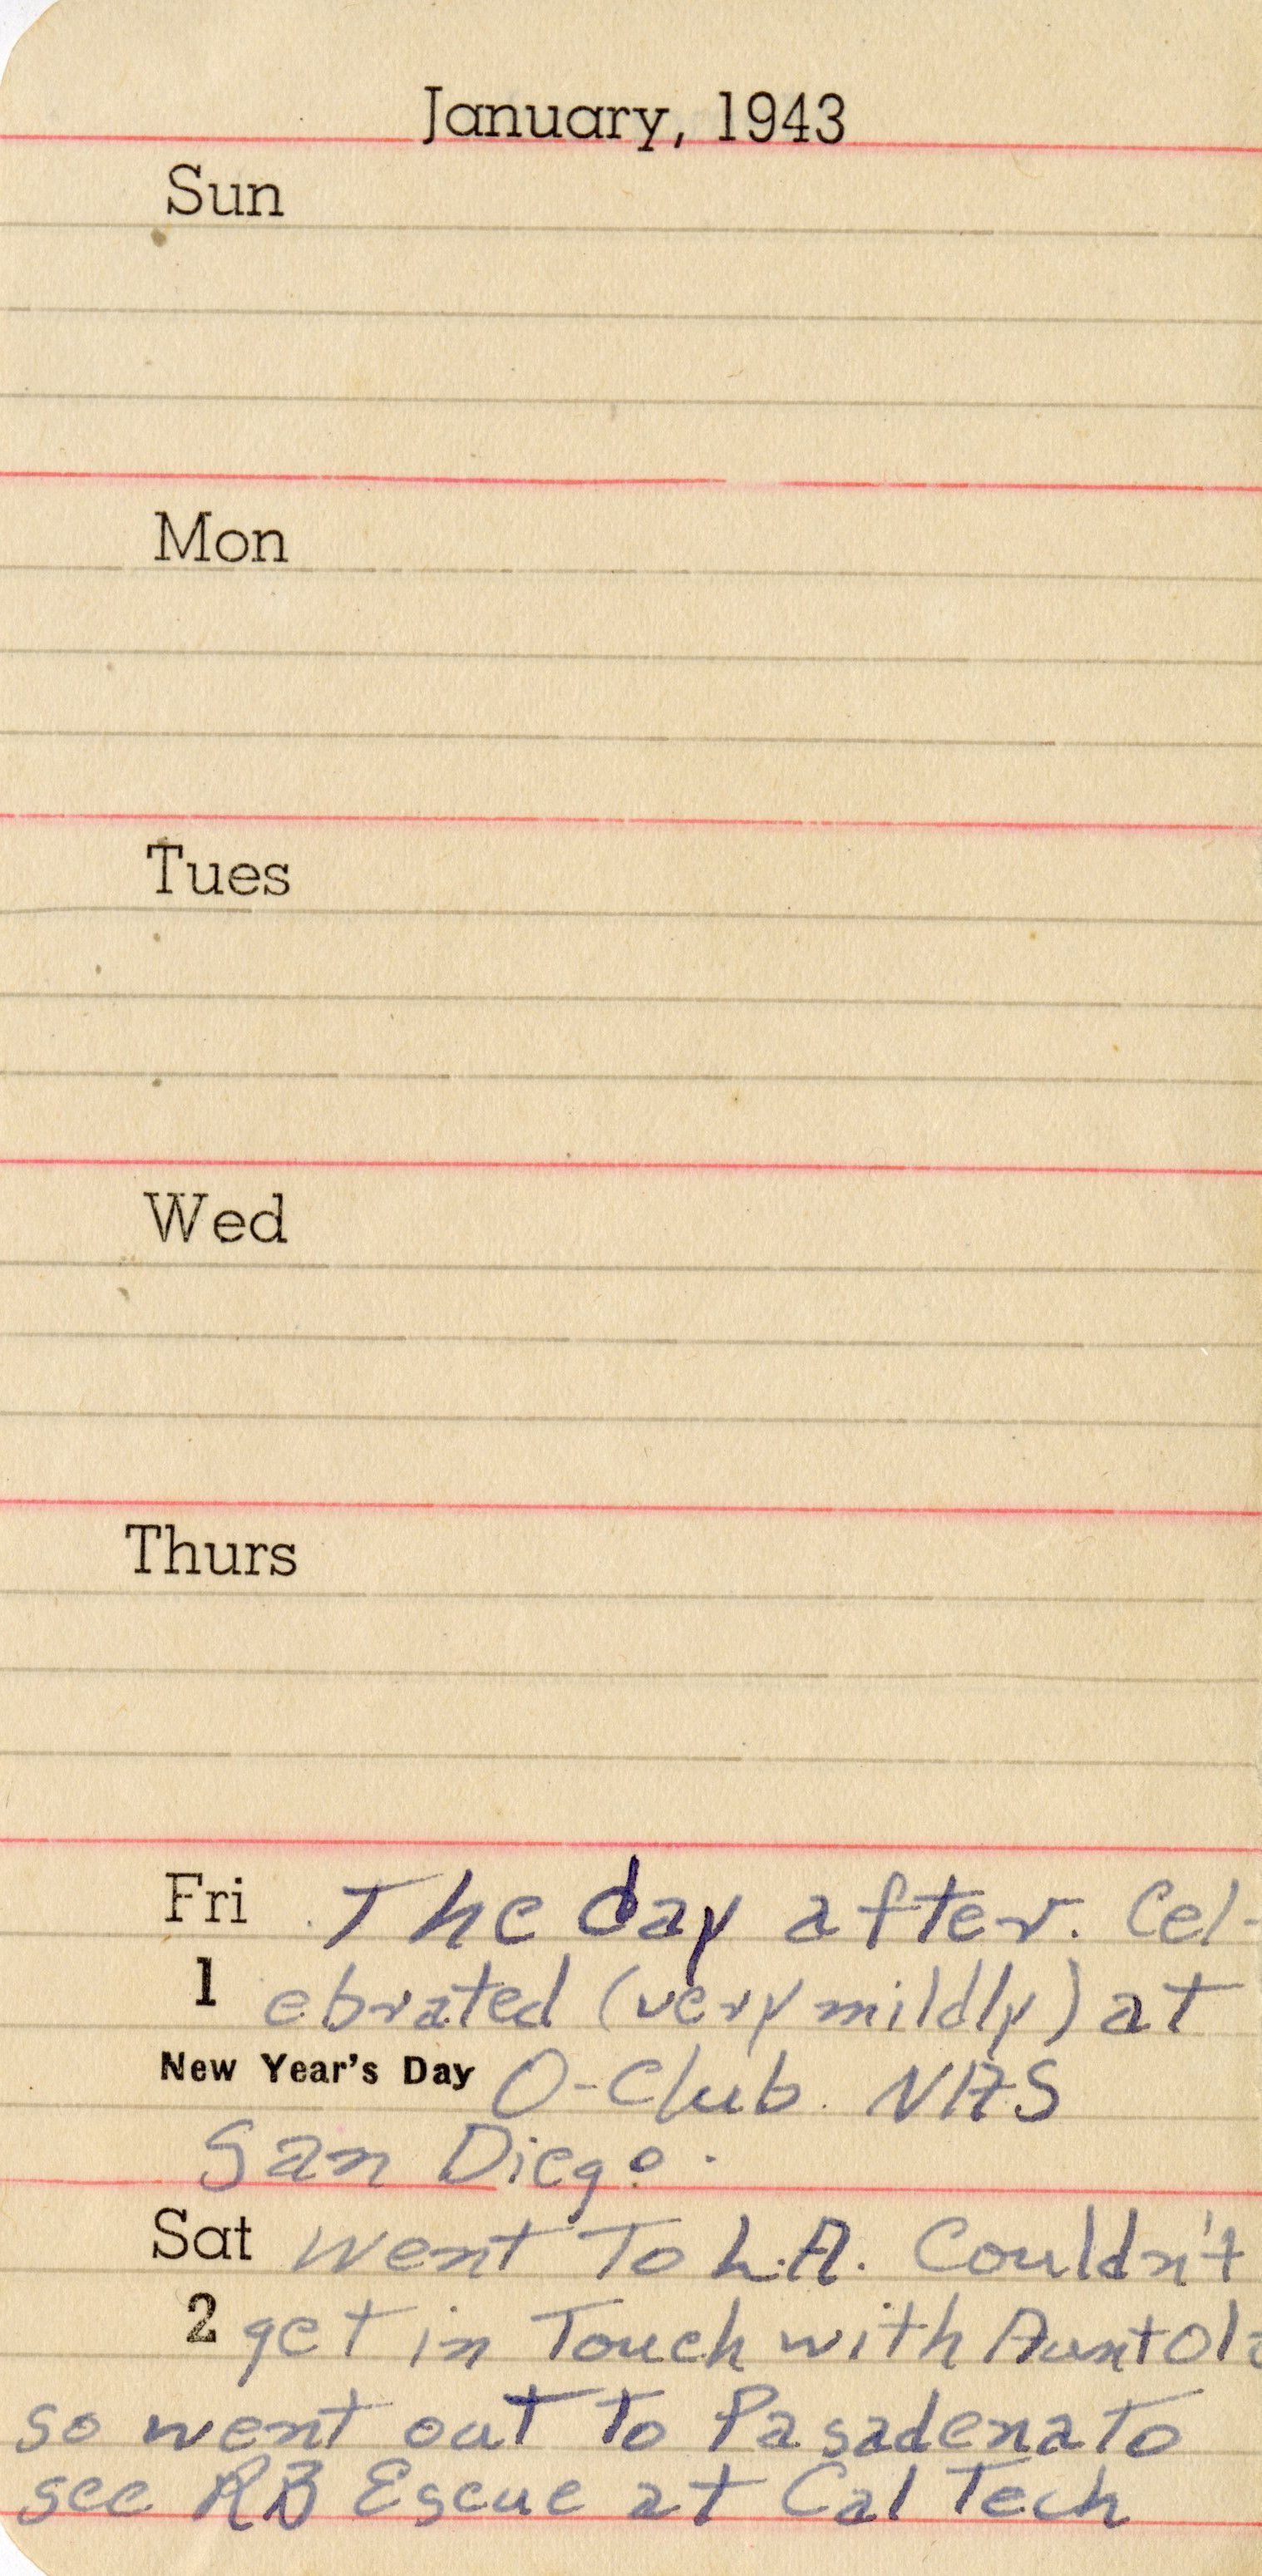 January, 1943
Sun
Mon
Tues
Wed
Thurs
Fri The day after. Cel-
1 ebrated (very mildly) at
New Year's Day O-Club. NAS
San Diego.
Sat Went To L.A. Couldn't
2 get in Touch with Aunt
so went out To Pasadena To
see RB Escue at Cal Tech